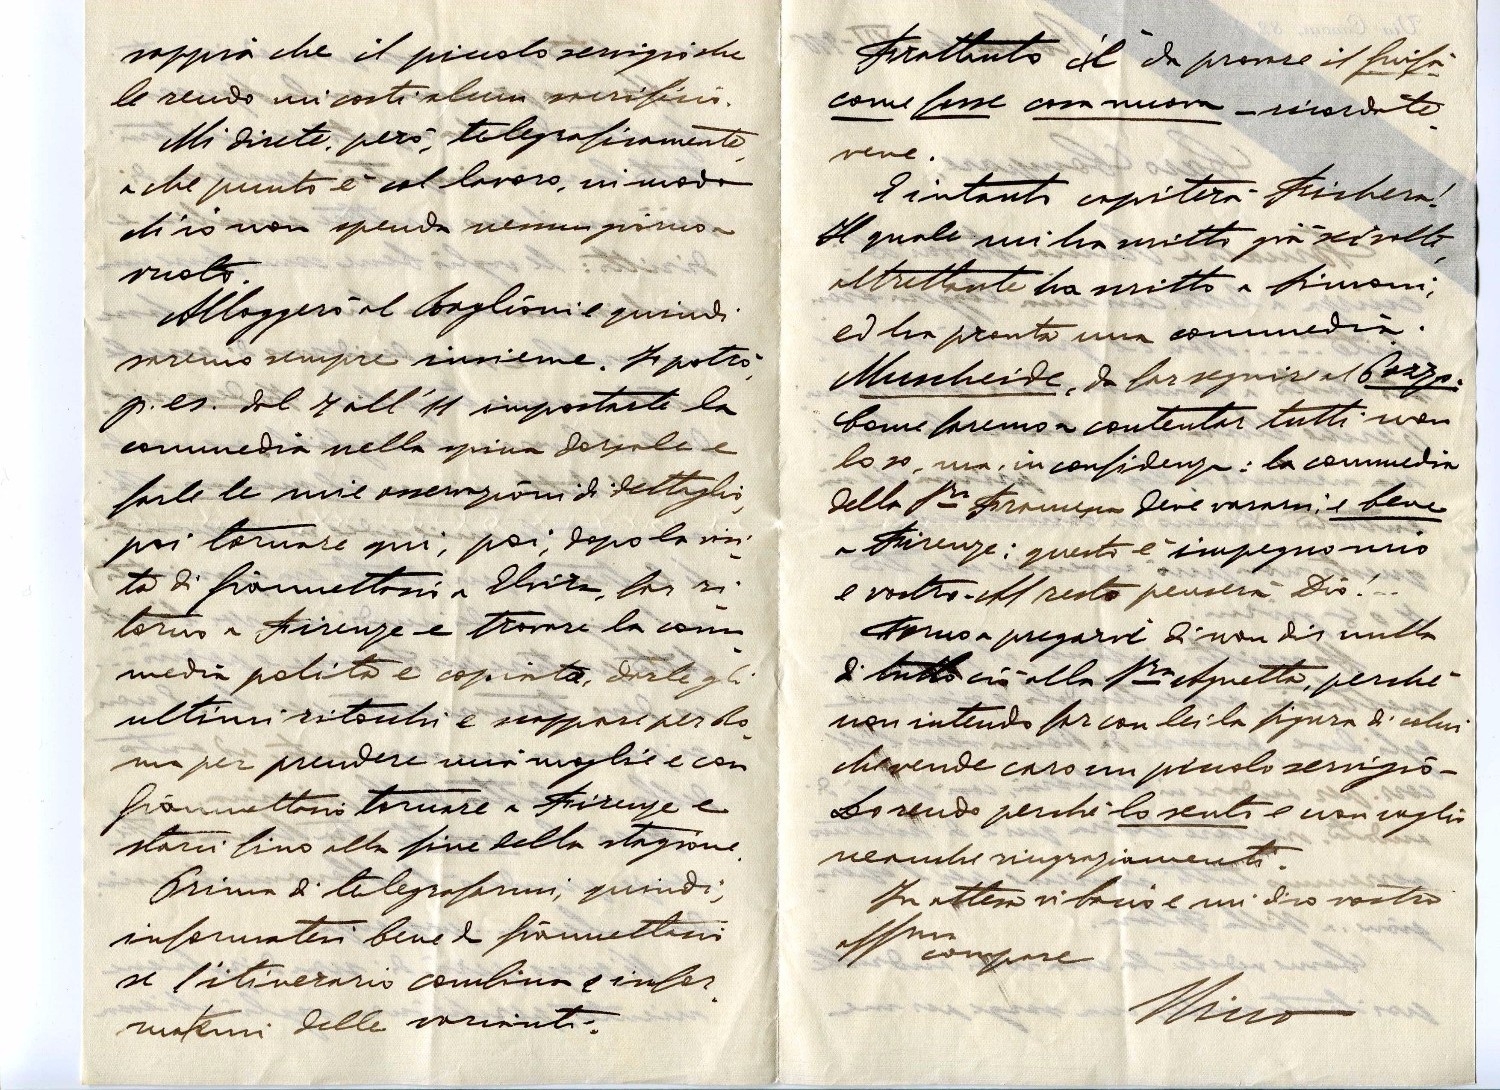 sappia che il piccolo servigio che
le rendo mi costi alcun sacrificio.
Mi direte, però, telegraficamente,
a che punto è col lavoro, in modo
ch'io non spenda nessun giorno a
vuoto.
Alloggerò al Baglioni e quindi
saremo sempre insieme. Io potrò,
p. es. dal 7 all'11 impostarle la
commedia nella spina dorsale e
farle le mie osservazioni di dettaglio,
poi tornare qui, poi, dopo la visi-
ta di Giannettasi a Elvira, far ri-
torno a Firenze e trovare la com-
media polita e copiata, darle gli
ultimi ritocchi e scappare per Ro
ma per prendere mia moglie e con
Giannettasi tornare a Firenze e
starci fino alla fine della stagione.
Prima di telegrafarmi, quindi,
informatevi bene da Giannettasi
se l'itinerario combina e infor-
matemi delle varianti.
Frattanto c'è da provare il
come fosse cosa nuova – ricordate
vene.
E intanto capiterà Fischera!
Il quale mi ha scritto già sei volte,
altrettante ha scritto a Simoni,
ed ha pronta una commedia.
da far seguire al Pozzo.
Come faremo a contentar tutti non
lo so, ma, in confidenza: la commedia
della Sra deve vararsi, e bene
a Firenze: questo è impegno mio
e vostro. Al resto penserà Dio!...
Torno a pregarvi di non dir nulla
di tutto ciò alla Sra Agnetta, perchè
non intendo far con lei la figura di colui
che vende caro un piccolo servigio –
Lo rendo perchè lo sento e non voglio
neanche ringraziamenti.
In attesa vi bacio e mi dico vostro
affmo
compare
Nino